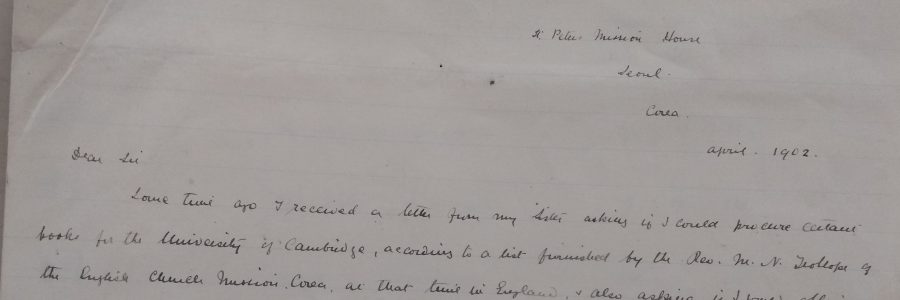 St Peters Mission House
Seoul.
Corea.
April. 1902.
Dear Sir
Some time ago I received a letter from my Sister asking if I could procure certain
books for the University of Cambridge, according to a list furnished by the Rev. M. N. Trollope of
the English Church Mission, Corea, at that time in England, & also asking if I would